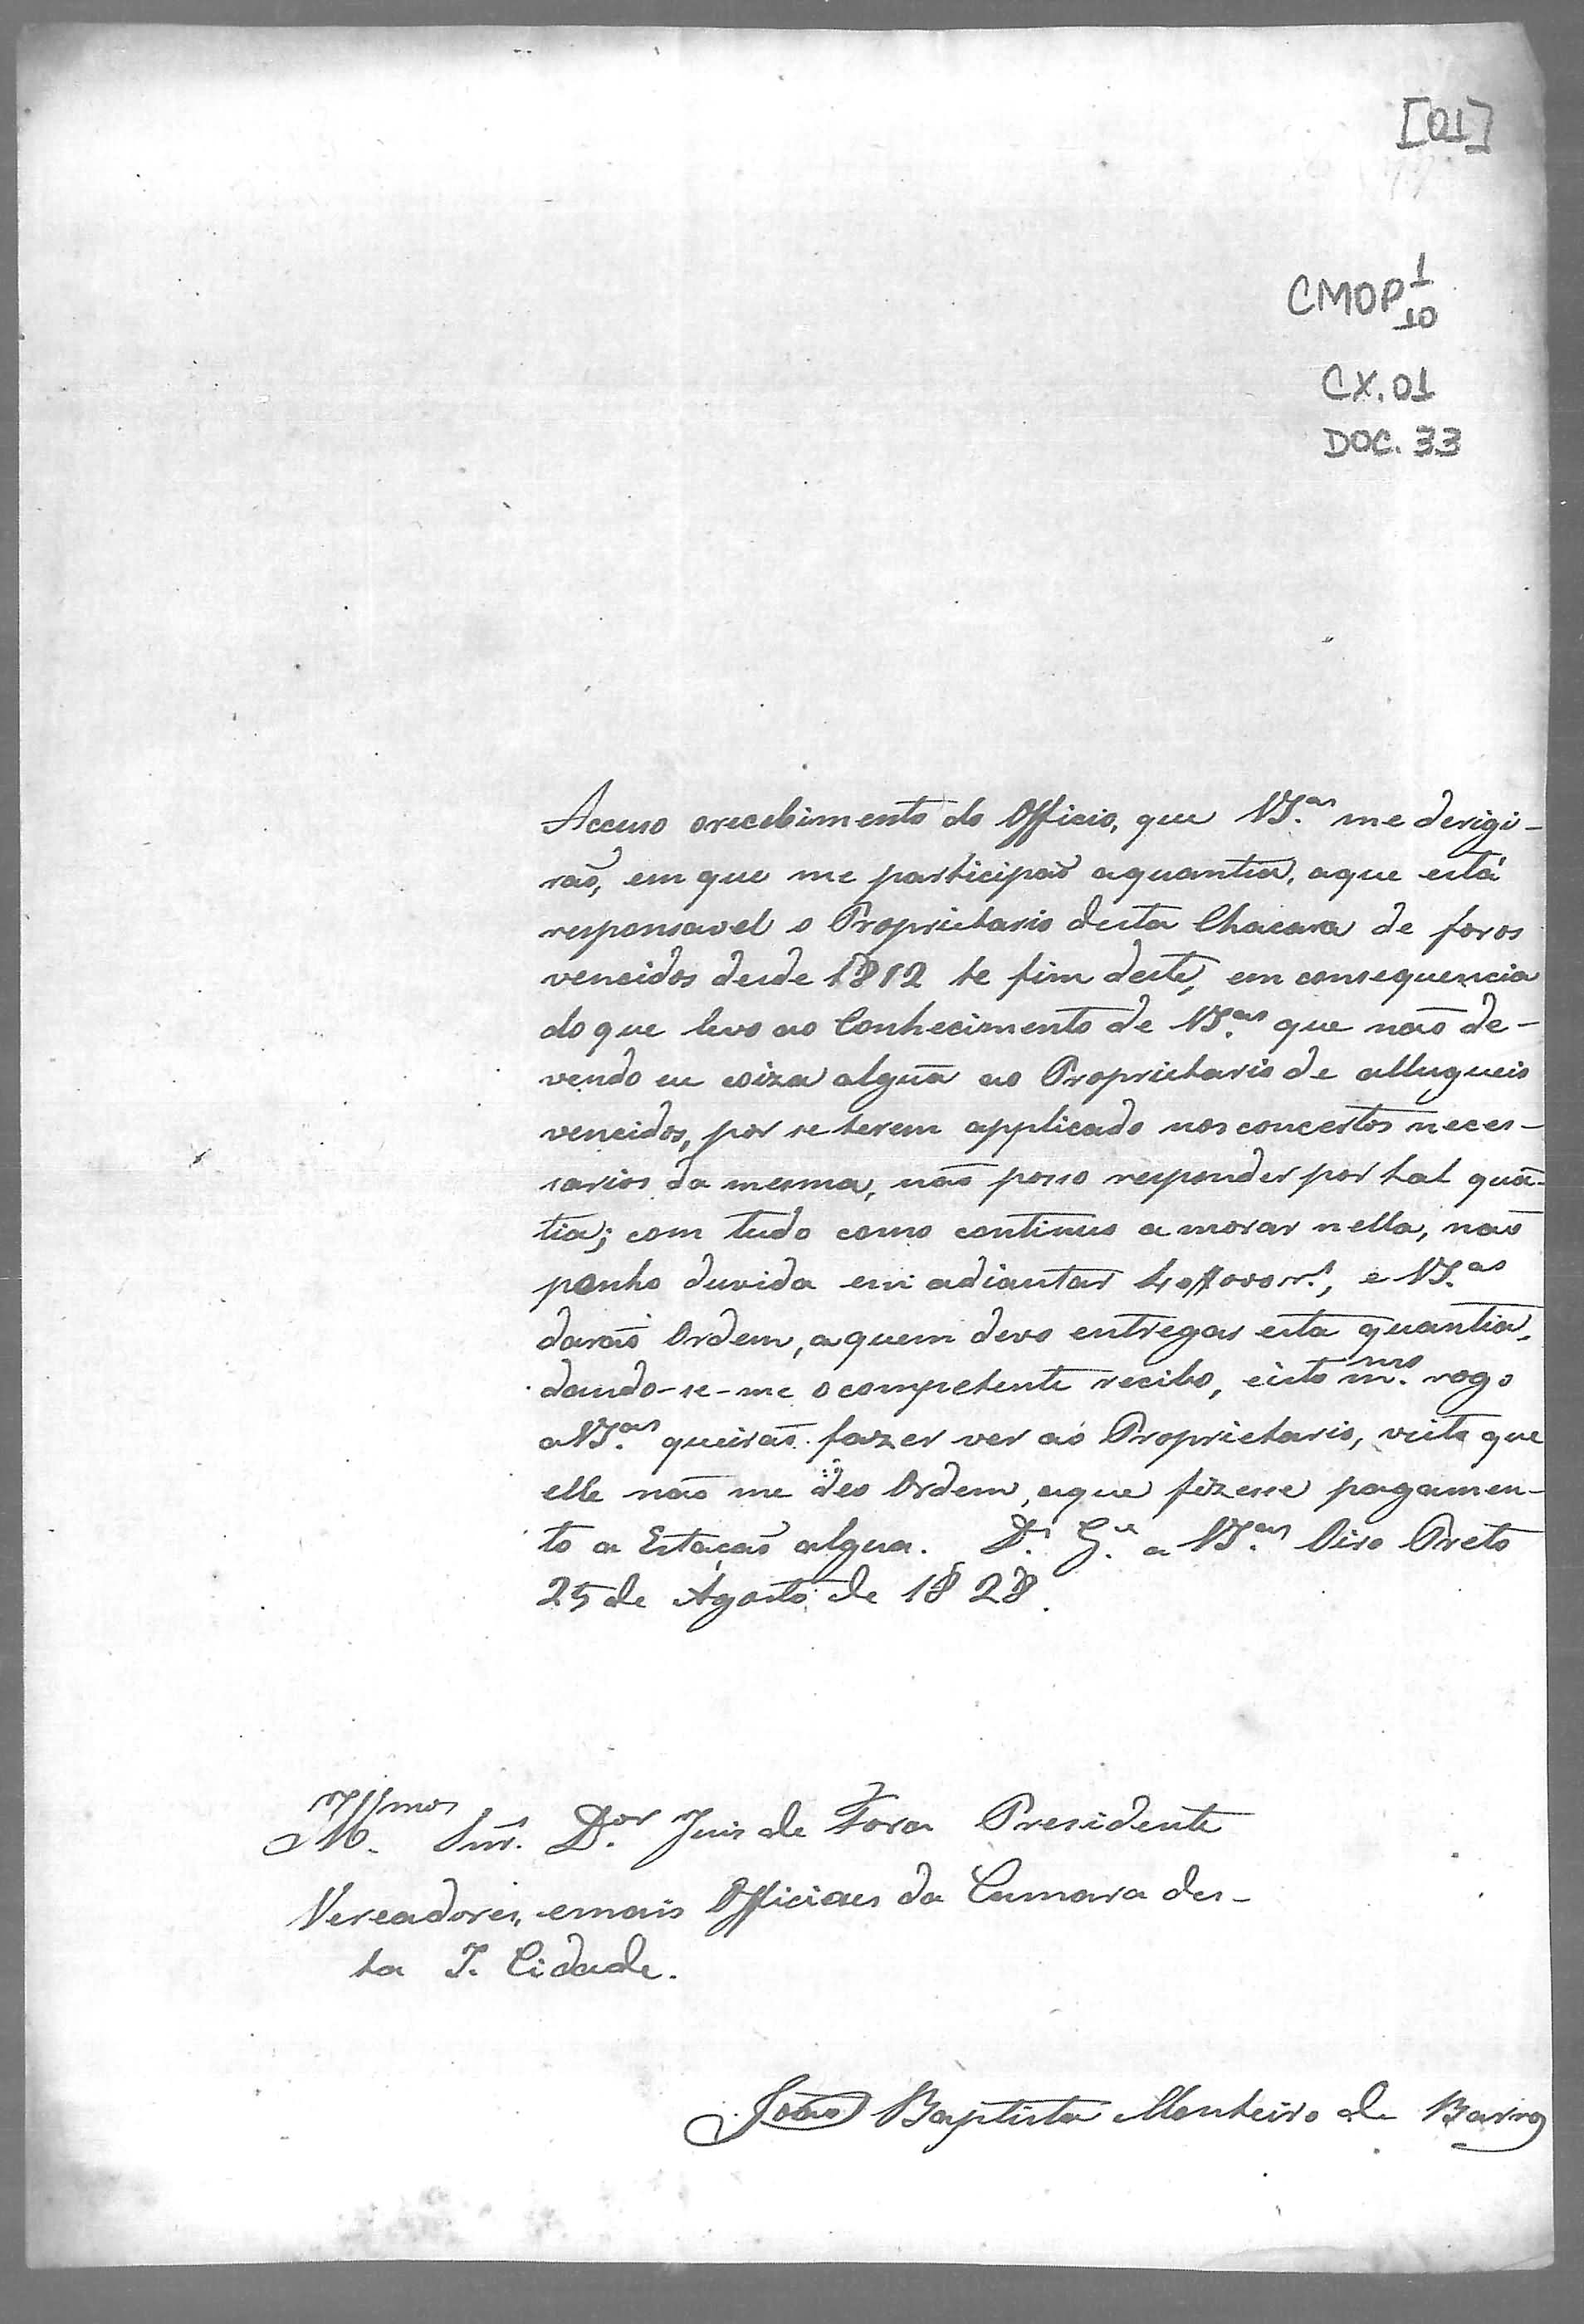 [01]
CMOP 1/10
CX. 01
DOC. 33
Accuso orecebimento do Officio, que VS.as me derigi-
rão, em que me participaõ aquantia, aque está
responsavel o Proprietario desta Chacara de foros
vencidos desde 1812 te fim deste, em consequencia
do que levo ao Conhecimento de VS.as que naõ de-
vendo eu coiza algũa ao Proprietario de allugueis
vencidos, por se terem applicado nos concertos neces-
sarios da mesma, naõ posso responder por tal quã-
tia; com tudo como continuo a morar nella, naõ
ponho duvida em adiantar r.s, e VS.as
daraõ Ordem, aquem devo entregar esta quantia,
dando-se-me ocompetente recibo, eisto m.mo rogo
aVS.as queiraõ fazer ver ao Proprietario, visto que
elle naõ me deo Ordem, aque fizesse pagamen-
to a Estaçaõ algua. D.s G.e a VS.as Oiro Preto
25 de Agosto de 1828.
Ill.mos Snr. D.or Juis de Fora Presidente
Vereadores, emais Officiaes da Camara des-
ta I. Cidade.
João Baptista Monteiro de Barros